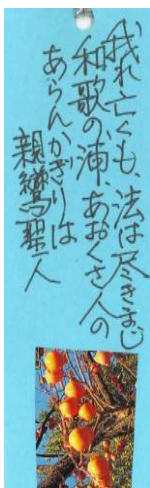 我れ亡くも、法は尽きまじ
和歌の浦、あおくさ人の
あらんかぎりは
親鸞聖人